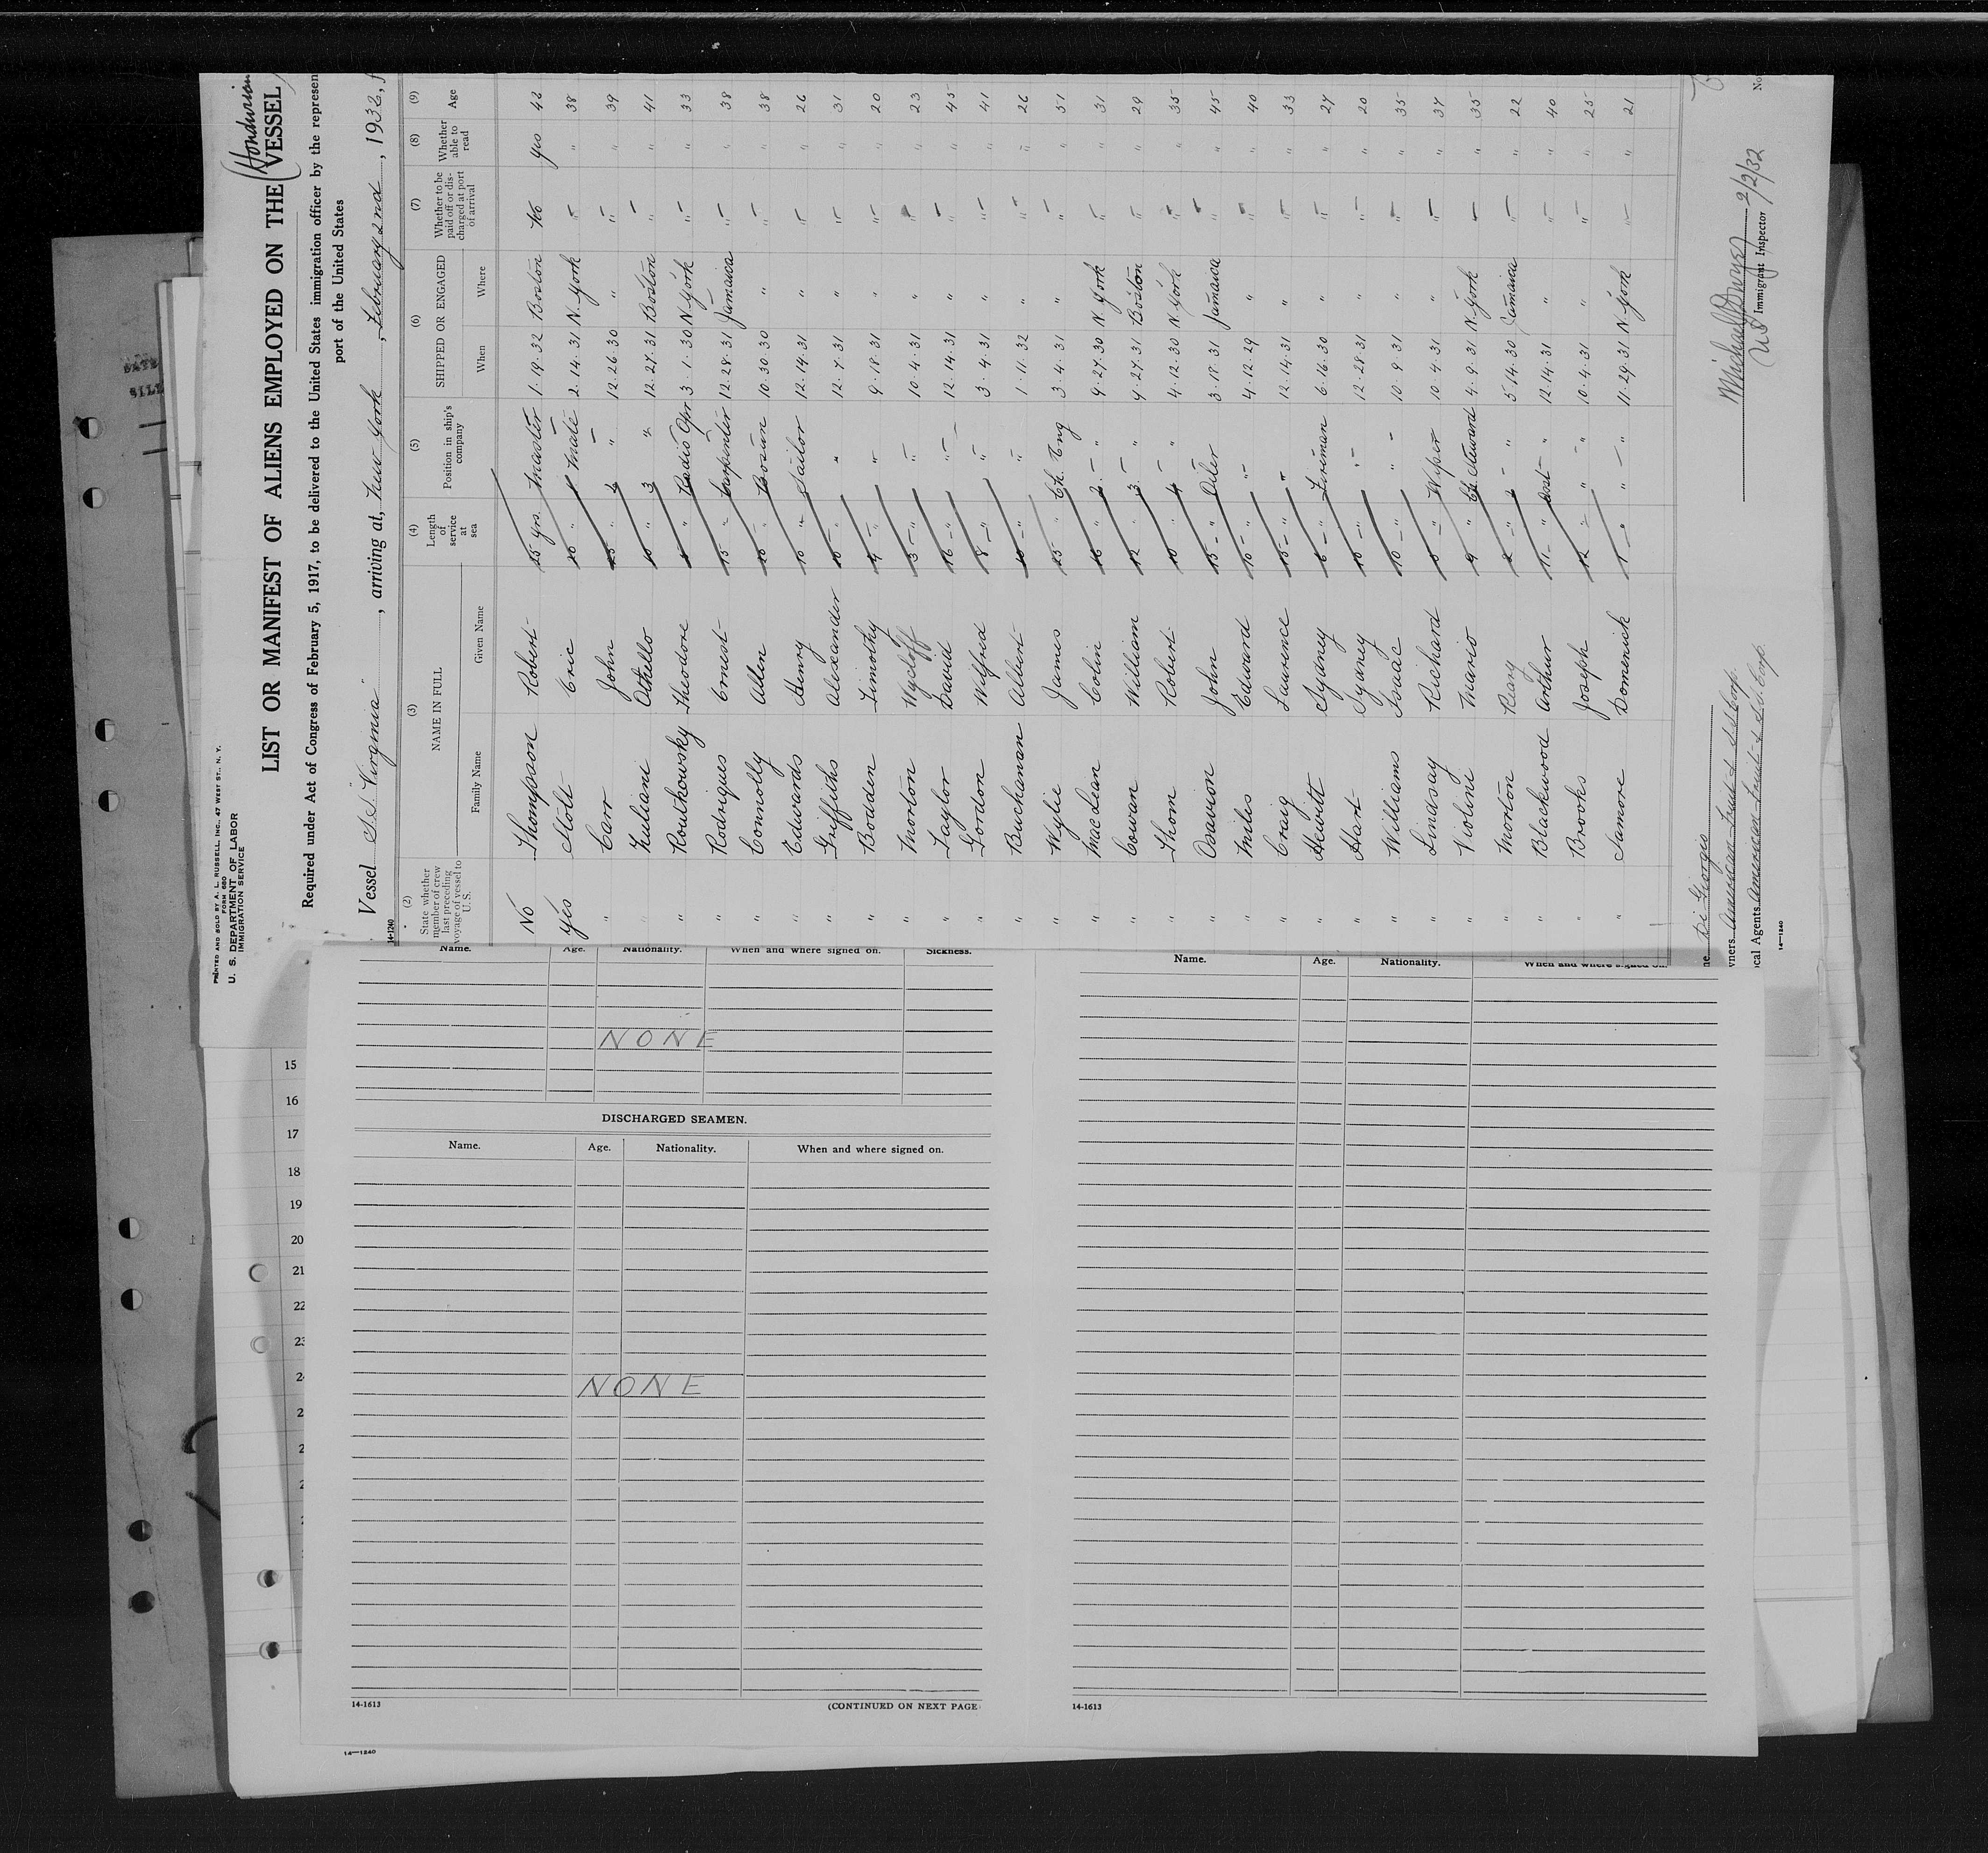 PRINTED AND SOLD BY A. L. RUSSELL, INC., 47 WEST ST., N. Y.
FORM 680
U. S. DEPARTMENT OF LABOR
IMMIGRATION SERVICE
(Honduran)
LIST OR MANIFEST OF ALIENS EMPLOYED ON THE VESSEL
Required under Act of Congress of February 5, 1917, to be delivered to the United States immigration officer by the represen
port of the United States
Vessel S.S. "Virginia", arriving at, New York, February 2nd, 1932, f
14-1240
(2) (3) (4) (5) (6) (7) (8) (9)
State whether member of crew last preceding voyage of vessel to U. S. NAME IN FULL Length of service at sea Position in ship's company SHIPPED OR ENGAGED Whether to be paid off or discharged at port of arrival Whether able to read Age
Family Name Given Name When Where
No Thompson Robert 25 yrs. Master 1.19.32 Boston No yes 42
yes Stolt Eric 20 " 1 Mate 2.14.31 N. York " " 38
" Carr John 25 " 2 " 12.26.30 " " " 39
" Zuliani Othello 10 " 3 " 12.27.31 Boston " " 41
" Routhowsky Theodore " Radio Opr 3.1.30 N. York " " 33
" Rodriques Ernest 15 " Carpenter 12.28.31 Jamaica " " 38
" Connolly Allen 20 " Bosun 10.30.30 " " " 38
" Edwards Henry 10 " Sailor 12.14.31 " " " 26
" Griffiths Alexander 10 " " 12.7.31 " " " 31
" Bodden Timothy 4 " " 9.18.31 " " " 20
" Morton Wycloff 3 " " 10.4.31 " " " 23
" Taylor David 16 " " 12.14.31 " " " 45
" Gordon Wilfred 8 " " 3.4.31 " " " 41
" Buchanan Albert 10 " " 1.11.32 " " " 26
" Wylie James 25 " Ch. Eng 3.4.31 " " " 51
" MacLean Colin 10 " 2 " 9.27.30 N. York " " 31
" Cowan William 12 " 3 " 9.27.31 Boston " " 29
" Thom Robert 10 " 4 " 4.12.30 N. York " " 35
" Osavion John 15 " Oiler 3.18.31 Jamaica " " 45
" Miles Edward 10 " " 4.12.29 " " " 40
" Craig Laurence 15 " " 12.14.31 " " " 33
" Hewitt Sydney 6 " Fireman 6.16.30 " " " 27
" Hart Sydney 10 " " 12.28.31 " " " 20
" Williams Isaac 10 " " 10.9.31 " " " 35
" Lindsay Richard " Wiper 10.4.31 " " " 37
" Violini Mario 9 " Ch. Steward 4.9.31 N. York " " 35
" Morton 2 " 2 " 5.14.30 Jamaica " " 22
" Blackwood Arthur 11 " Asst " 12.14.31 " " " 40
" Brooks Joseph 12 " " " 10.4.31 " " " 25
" Samore Domenick 1 " " " 11.29.31 N. York " " 21
ne Di Giorgio
wners American Fruit & SS Corp.
ocal Agents American Fruit & S.S. Corp.
14—1240
Michael J Dwyer 2/2/32
US Immigrant Inspector
No
Name. Age. Nationality. When and where signed on. Sickness.
NONE
DISCHARGED SEAMEN.
Name. Age. Nationality. When and where signed on.
NONE
14-1613 (CONTINUED ON NEXT PAGE
Name. Age. Nationality. When and where signed on.
14-1613
15
16
17
18
19
20
21
22
23
2
2
2
14—1240